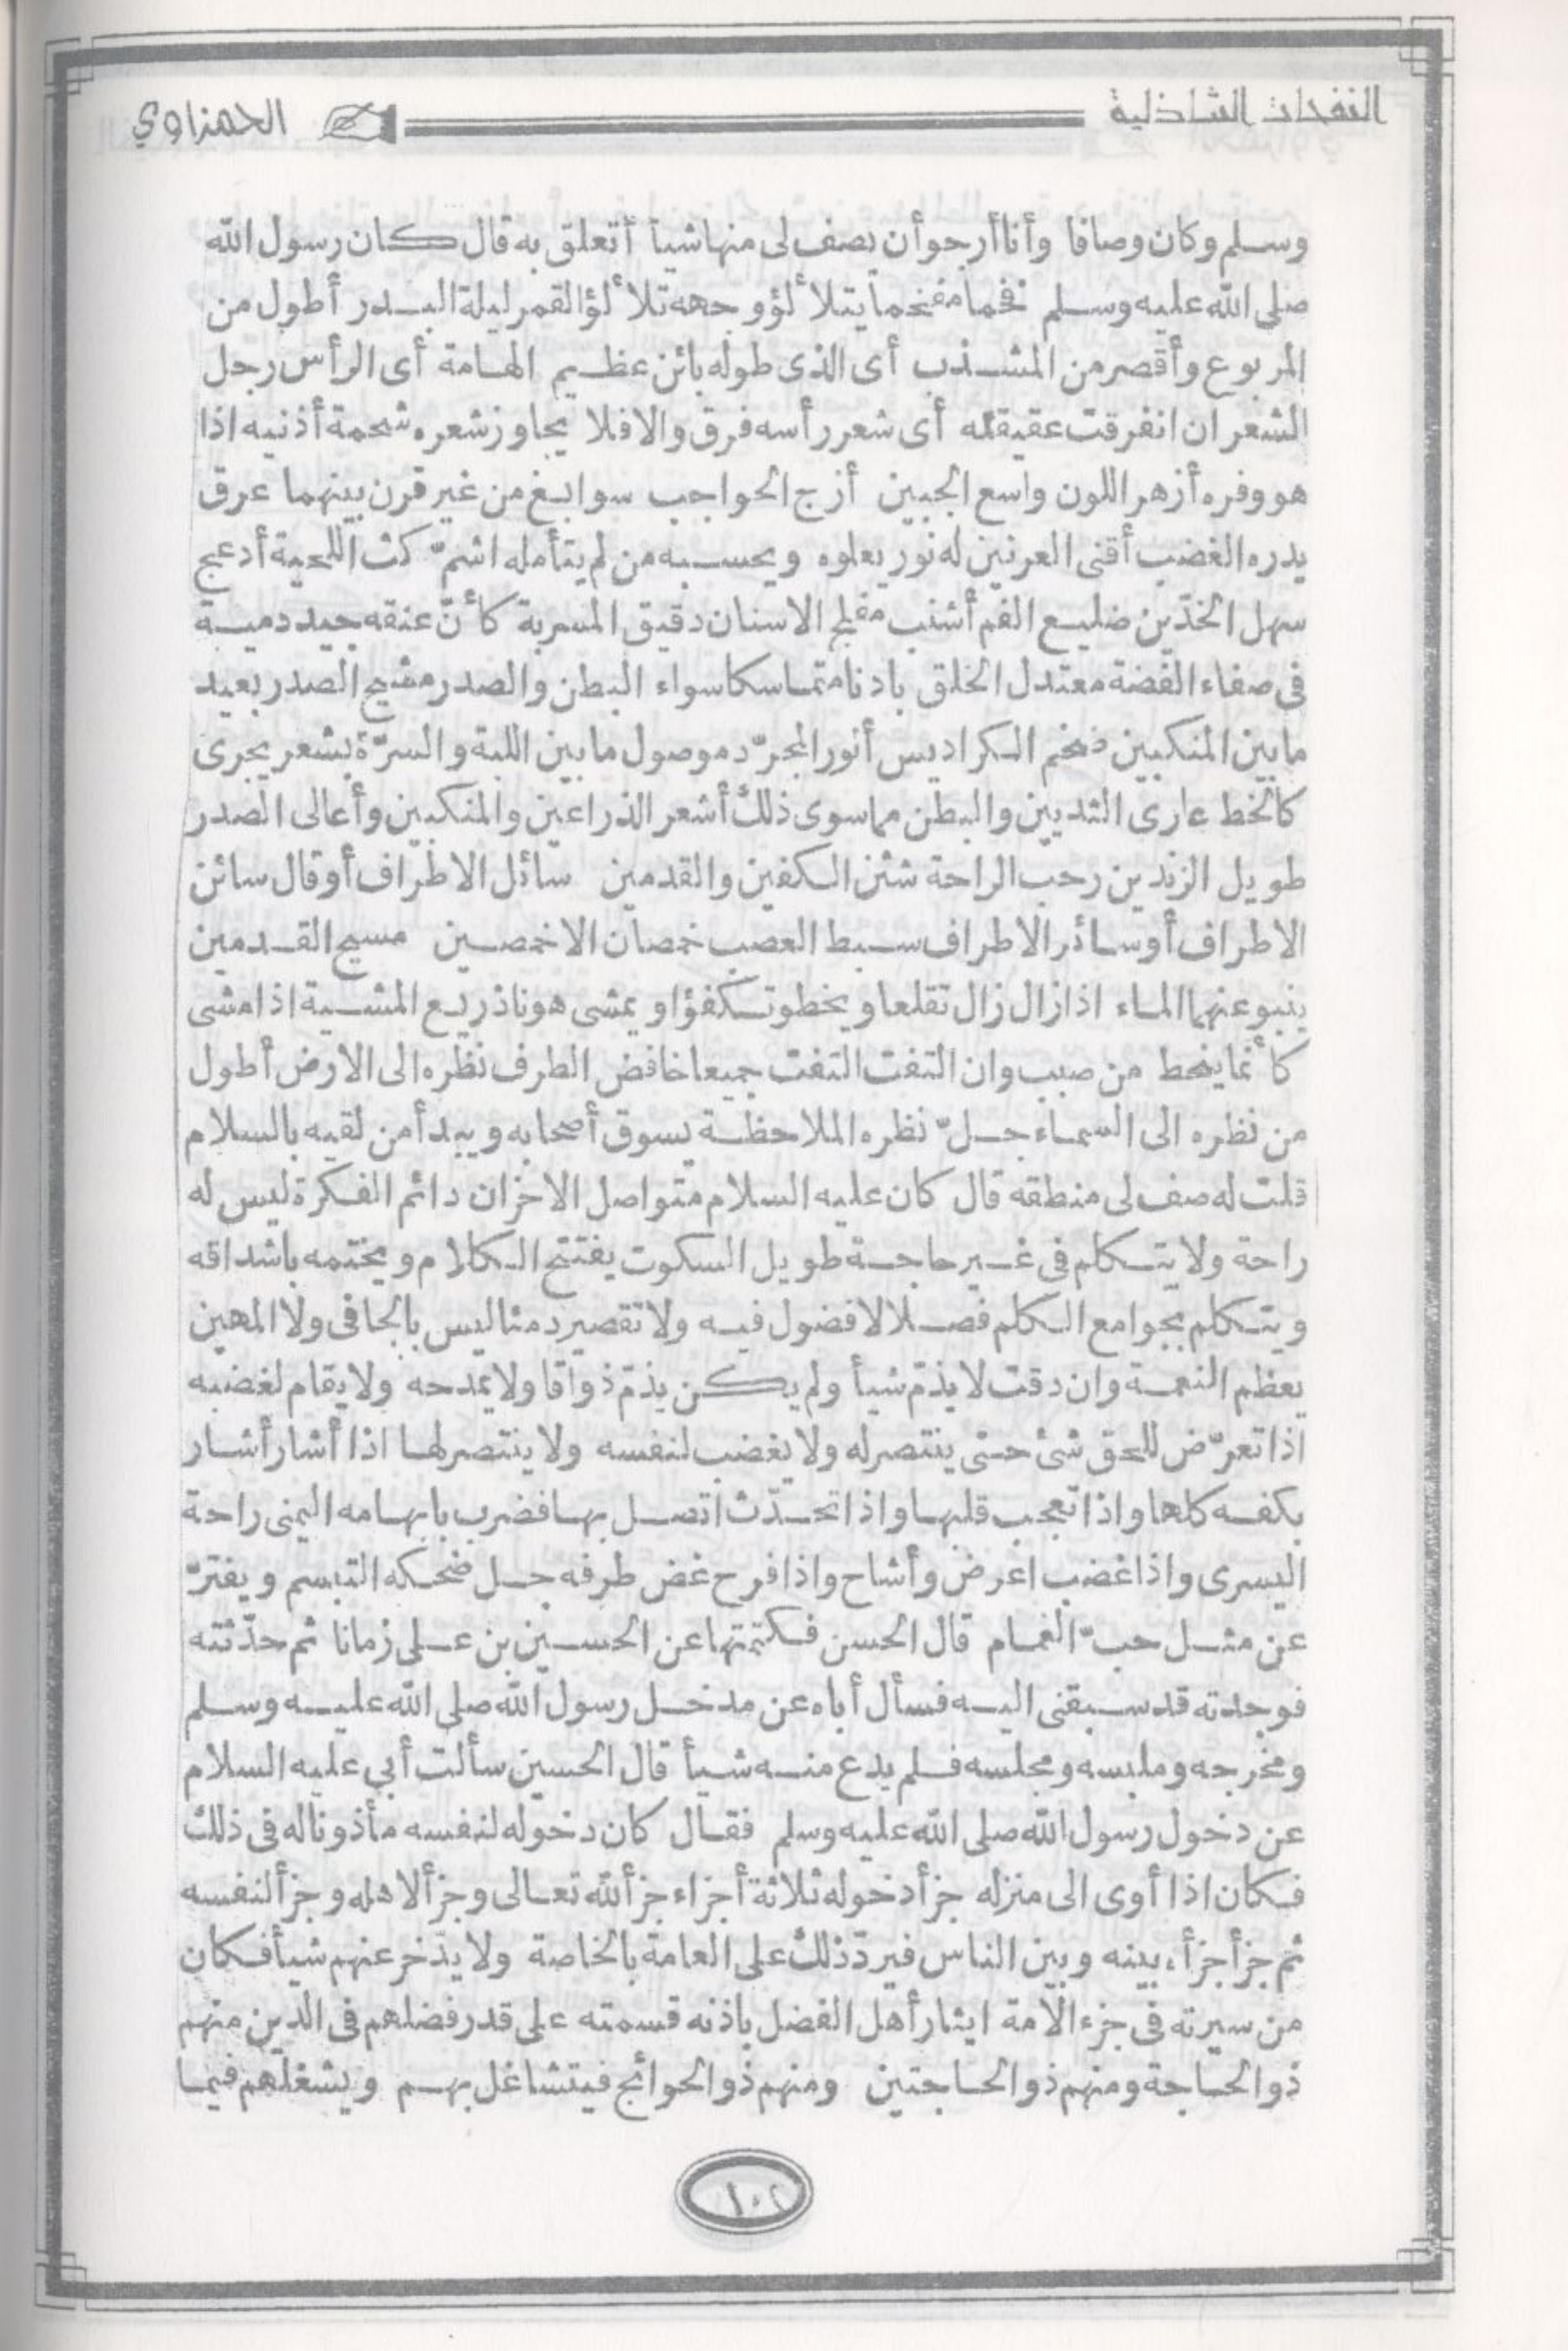 النفحات الشاذلية
الحمزاوي
وسلم وكان وصافا وأنا أرجو أن يصف لى منها شيأ أتعلق به قال كان رسول الله
صلى الله عليه وسلم فخما مفخما يتلألؤ وجهه تلألؤ القمر ليلة البدر أطول من
المربوع وأقصر من المشذب أى الذى طوله بائن عظيم الهامة أى الرأس رجل
الشعر ان انفرقت عقيقته أى شعر رأسه فرق والا فلا يجاوز شعره شحمة أذنيه اذا
هو وفره أزهر اللون واسع الجبين أزج الحواجب سوابغ من غير قرن بينهما عرق
يدره الغضب أقنى العرنين له نور يعلوه ويحسبه من لم يتأمله اشمّ كث اللحية أدعج
سهل الخدّين ضليع الفم أشنب مفلج الاسنان دقيق المسربة كأنّ عنقه جيد دمية
فى صفاء الفضة معتدل الخلق بادنا متماسكا سواء البطن والصدر مشيح الصدر بعيد
ما بين المنكبين ضخم الكراديس أنور المجرّد موصول ما بين اللبة والسرّة بشعر يجرى
كالخط عارى الثديين والبطن مما سوى ذلك أشعر الذراعين والمنكبين وأعالى الصدر
طويل الزندين رحب الراحة شثن الكفين والقدمين سائل الاطراف أو قال سائن
الاطراف أو سائر الاطراف سبط العصب خمصان الاخمصين مسيح القدمين
ينبو عنهما الماء اذا زال زال تقلعا ويخطو تكفؤا ويمشى هونا ذريع المشية اذا مشى
كأنما ينحط من صبب وان التفت التفت جميعا خافض الطرف نظره الى الارض أطول
من نظره الى السماء جلّ نظره الملاحظة يسوق أصحابه ويبدأ من لقيه بالسلام
قلت له صف لى منطقه قال كان عليه السلام متواصل الاحزان دائم الفكرة ليس له
راحة ولا يتكلم فى غير حاجة طويل السكوت يفتتح الكلام ويختمه باشداقه
ويتكلم بجوامع الكلم فصلا لا فضول فيه ولا تقصير دمثا ليس بالجافى ولا المهين
يعظم النعمة وان دقت لا يذمّ شيأ ولم يكن يذمّ ذواقا ولا يمدحه ولا يقام لغضبه
اذا تعرّض للحق شئ حتى ينتصر له ولا يغضب لنفسه ولا ينتصر لها اذا أشار أشار
بكفه كلها واذا تعجب قلبها واذا تحدّث اتصل بها فضرب بابهامه اليمنى راحة
اليسرى واذا غضب اعرض وأشاح واذا فرح غض طرفه جل ضحكه التبسم ويفترّ
عن مثل حبّ الغمام قال الحسن فكتمتها عن الحسين بن على زمانا ثم حدّثته
فوجدته قد سبقنى اليه فسأل أباه عن مدخل رسول الله صلى الله عليه وسلم
ومخرجه وملبسه ومجلسه فلم يدع منه شيأ قال الحسين سألت أبي عليه السلام
عن دخول رسول الله صلى الله عليه وسلم فقال كان دخوله لنفسه مأذونا له فى ذلك
فكان اذا أوى الى منزله جزأ دخوله ثلاثة أجزاء جزأ لله تعالى وجزأ لاهله وجزأ لنفسه
ثم جزأ جزأه بينه وبين الناس فيردّ ذلك على العامة بالخاصة ولا يدّخر عنهم شيأ فكان
من سيرته فى جزء الامة ايثار أهل الفضل باذنه قسمته على قدر فضلهم فى الدين منهم
ذو الحاجة ومنهم ذو الحاجتين ومنهم ذو الحوائج فيتشاغل بهم ويشغلهم فيما
١٠٢